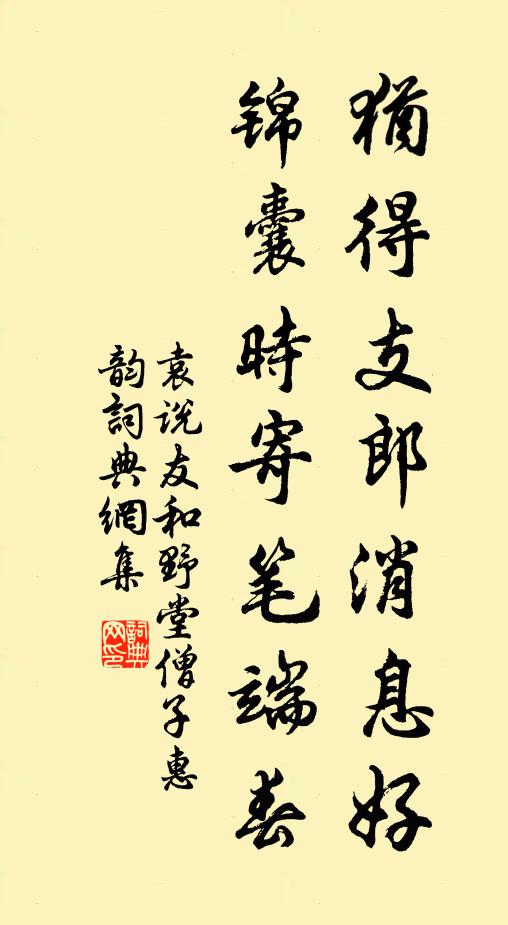 猶得支郎消息好
锦囊時寄笔端春
袁说友和野堂僧子惠
韵詞典網集
詞典网印